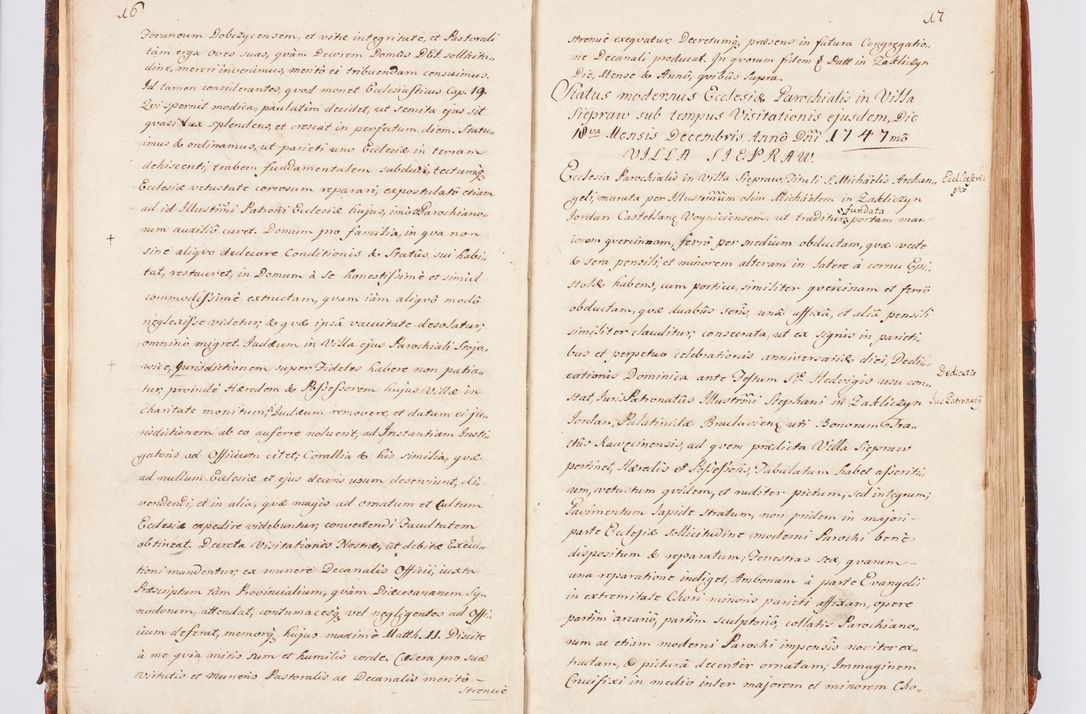 16
Foraneum Dobczycensem, et vitæ integritate, et Pastorali
tàm erga oves suas, quàm Decorem Domûs DEI sollicitu-
dine, mereri invenimus, meritò ei tribuendam censuimus.
Id tamen considerantes, quod monet Ecclesiasticus Cap. 19.
Qui spernit modica, paulatim decidet, ut semita ejus sit
quasi Lux splendens, et crescat in perfectum diem. Statu-
imus & ordinamus, ut parieti uno Ecclesiæ in terram
dehiscenti, trabem fundamentalem subduci, tectumq;
Ecclesiæ vetustate corrosum reparari, expostulatô etiam
ad id Illustrmi Patroni Ecclesiæ hujus, imò & Parochiano-
rum auxiliô curet. Domum pro familia, in qva non
sine aliqvo dedecore Conditionis & Statûs sui habi-
tat, restauret, in Domum à Se honestissimè et simul
commodissimè extructam, qvam iàm aliqvô modô
neglexisse videtur, & qvæ ipsâ vacuitate desolatur,
omninò migret. Judæum in Villa ejus Parochiali Stojo-
wice, Jurisdictionem super Fideles habere non patia-
tur, proindè Hæredem & Possessorem hujus Villæ in
charitate monitum, si Judæum removere, et datam ei ju-
risdictionem ab eo auferre noluerit, ad Instantiam Insti-
gatoris ad Officium citet; Corallia & his similia, qvæ
ad nullum Ecclesiæ et ejus decoris usum deserviunt, di-
vendendi, et in alia, qvæ magis ad ornatum et Cultum
Ecclesiæ expedire videbuntur, convertendi Facultatem
obtineat. Decreta Visitationis Nostræ, ut debitæ Execu-
tioni mandentur, ex munere Decanalis Officii, iuxta
Præscriptum tàm Provincialium, qvàm Diæcesanarum Sy-
nodorum, attendat, contumacesq; vel negligentes ad Offi-
cium deferat, memorq; hujus maximè Matth. 11. Discite
à me qvia mitis sum et humilis corde. Cætera pro suæ
Virtutis et Muneris Pastoralis ac Decanalis meritô -
Strenuè
17
strenuè exeqvatur, Decretumq; præsens in futura Congregatio-
ne Decanali producat. In qvorum fidem &c Datt in Zakliczyn
Die, Mense & Annô, qvibus Supra.
Status modernus Ecclesiæ Parochialis in Villa
Siepraw sub tempus Visitationis ejusdem, Die
18va Mensis Decembris Annô Dni 1747mô
VILLA SIEPRAW
Ecclesia Parochialis in Villa Siepraw, Tituli S. Michaëlis Archan-
geli, murata per Illustrmum olim Michaëlem in Zakliczyn
Jordan Castellanũ Voyniciensem, ut traditur, fundata portam ma-
iorem qvercinam, ferrô per medium obductam, qvæ vecte
& sera pensili, et minorem alteram in latere à cornu Epi-
stolæ habens, cum porticu, similiter qvercinam et ferrô
obductam, qvæ duabus seris, unâ affixâ, et aliâ pensili
similiter clauditur, consecrata, ut ex signis in parieti-
bus et perpetuo celebrationis anniversariæ diei, Dedi-
cationis Dominica ante Festum Stæ Hedvigis usu con-
stat, Juris Patronatus Illustrmi Stephani in Zakliczyn
Jordan, Palatinidæ Braclavien̄ uti Bonorum & Tra-
ctus Rawecinensis, ad qvem prædicta Villa Siepraw
pertinet, Hæredis & Possessoris, Tabulatum habet asseriti-
um, vetustum qvidem, et ruditer pictum, sed integrum;
Pavimentum lapide stratum, non pridem in majori -
parte Ecclesiæ sollicitudine moderni Parochi benè
dispositum & reparatum; Fenestras sex, qvarum -
una reparatione indiget, Ambonam à parte Evangelii
in extremitate Chori minoris parieti affixam, opere
partim arcariô, partim sculptoriô, collatis Parochiano-
rum ac etiam moderni Parochi impensis noviter ex-
tructam, & picturâ decenter ornatam; Immaginem
Crucifixi in medio inter majorem et minorem Cho-
Dedicatio
Jus Patronatq